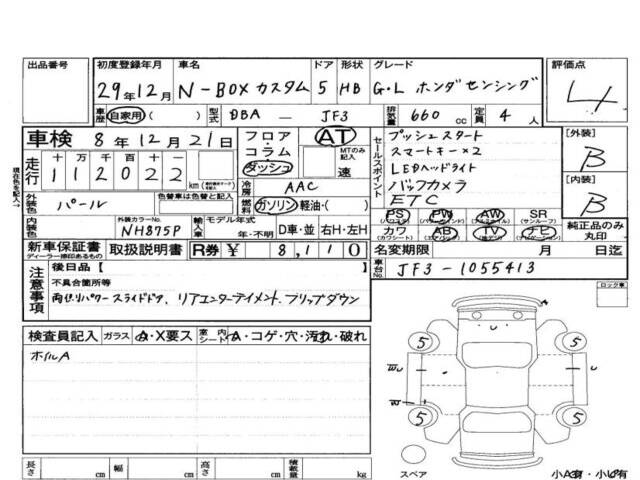 出品番号
初度登録年月
29年12月
車名
N-BOX カスタム
ドア
5
形状
HB
グレード
G・L ホンダセンシング
評価点
4
車歴
自家用・( )
型式
DBA — JF3
排気量
660 cc
定員
4 人
車検
8年12月21日
フロア・コラム・ダッシュ
AT
MTのみ記入
速
セールスポイント
プッシュスタート
スマートキー×2
LEDヘッドライト
バックカメラ
ETC
[外装]
B
[内装]
B
現在色を記入→
走行
十 万 千 百 十 一
1 1 2 0 2 2
km
冷房
AAC
外装色
パール
色替車は色替と記入
燃料
ガソリン・軽油・( )
PS PW AW SR
(パワステ) (サンルーフ)
カワ AB TV ナビ
(カワシート)
純正品のみ丸印
内装色
外装カラーNo.
NH875P
輸入車
モデル年式
年・不明
D車・並
右H・左H
新車保証書
ディーラー捺印あるもの
取扱説明書
R券
¥ 8,110
名変期限
月 日迄
注意事項
後日品【
不具合箇所等
両側パワースライドドア、リアエンターテイメント、フリップダウン
車台No.
JF3-1055413
ロック車
検査員記入
ガラス
A・X要ス
室内シート
A・コゲ・穴・汚れ・破れ
ホイルA
5
5
5
5
U
W
U
W
スペア
長さ
cm
幅
cm
高さ
cm
積載量
kg
小A有・小U有